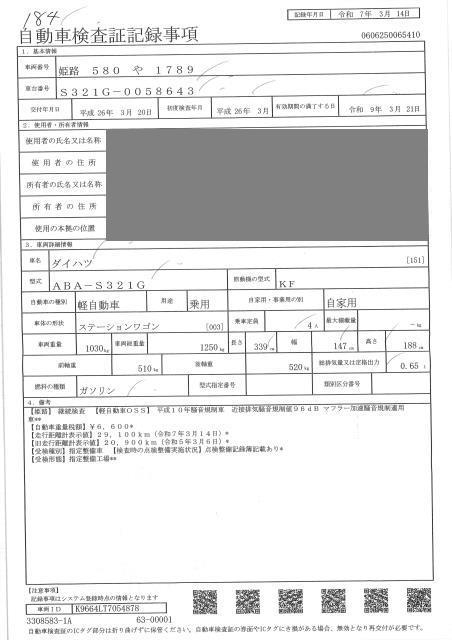 184
記録年月日 令和 7年 3月 14日
自動車検査証記録事項
0606250065410
1．基本情報
車両番号 姫路 580 や 1789
車台番号 S321G-0058643
交付年月日 平成 26年 3月 20日 初度検査年月 平成 26年 3月 有効期間の満了する日 令和 9年 3月 21日
2．使用者・所有者情報
使用者の氏名又は名称
使用者の住所
所有者の氏名又は名称
所有者の住所
使用の本拠の位置
3．車両詳細情報
車名 ダイハツ [151]
型式 ABA-S321G 原動機の型式 KF
自動車の種別 軽自動車 用途 乗用 自家用・事業用の別 自家用
車体の形状 ステーションワゴン [003] 乗車定員 4人 最大積載量 -kg
車両重量 1030kg 車両総重量 1250kg 長さ 339cm 幅 147cm 高さ 188cm
前軸重 510kg 後軸重 520kg 総排気量又は定格出力 0.65ℓ
燃料の種類 ガソリン 型式指定番号 類別区分番号
4．備考
【姫路】 継続検査 【軽自動車OSS】 平成10年騒音規制車 近接排気騒音規制値96dB マフラー加速騒音規制適用
車**
【自動車重量税額】￥6,600*
【走行距離計表示値】29,100km（令和7年3月14日）*
【旧走行距離計表示値】20,900km（令和5年3月6日）*
【受検種別】指定整備車 【検査時の点検整備実施状況】点検整備記録簿記載あり*
【受検形態】指定整備工場**
【注意事項】
記録事項はシステム登録時点の情報となります
車両ID K9664LT7054878
3308583-1A 63-00001
自動車検査証のICタグ部分は折り曲げずに保管ください。自動車検査証の券面やICタグにき損がある場合、無効となり再交付が必要です。